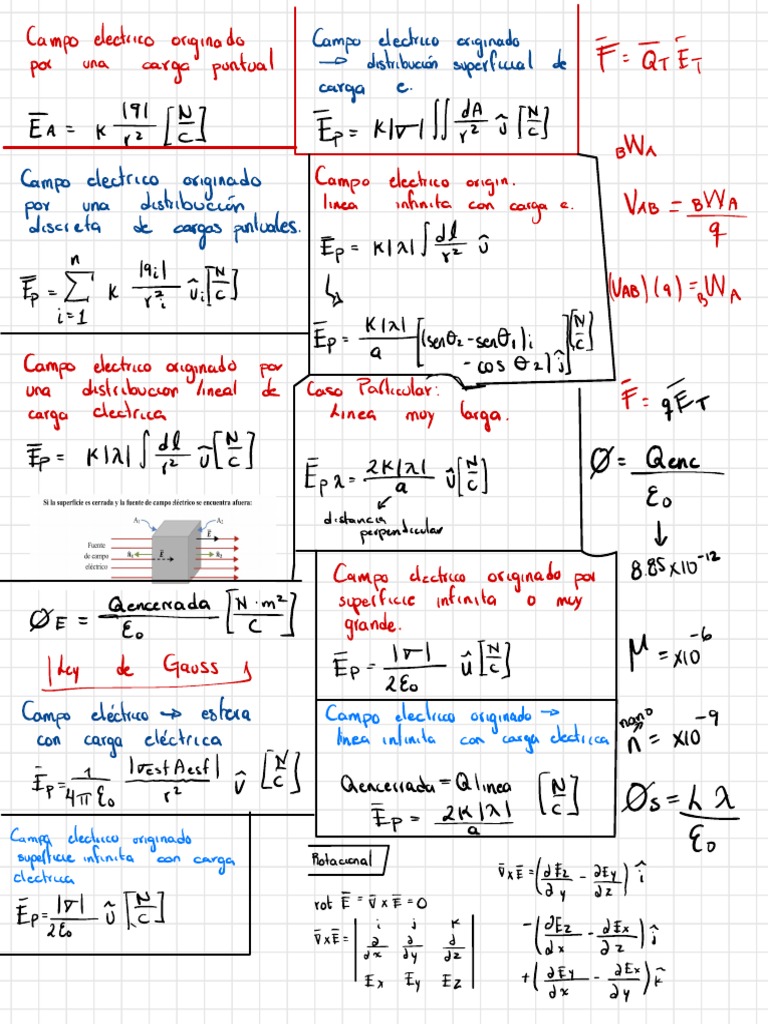 Campo electrico originado
por una carga puntual
E̅A = K |q|/r² [N/C]
Campo electrico originado
→ distribución superficial de
carga e.
E̅p = K|σ| ∬ dA/r² û [N/C]
F̅ = Q̅T E̅T
BWA
VAB = BWA/q
(VAB)(q) = BWA
Campo electrico originado
por una distribución
discreta de cargas puntuales.
E̅p = Σ K |qi|/r²i ûi [N/C]
n
i=1
Campo electrico origin.
linea infinita con carga e.
E̅p = K|λ| ∫ dl/r² û
↳
E̅p = K|λ|/a [(senθ2 - senθ1)i
- cos θ2)ĵ] [N/C]
Campo electrico originado por
una distribucion lineal de
carga electrica
E̅p = K|λ| ∫ dl/r² û [N/C]
Caso Particular:
Linea muy larga.
E̅pλ = 2K|λ|/a û [N/C]
distancia
perpendicular
F̅ = qE̅T
Ø = Qenc/ε0
↓
8.85x10⁻¹²
Si la superficie es cerrada y la fuente de campo eléctrico se encuentra afuera:
A1 A2
Fuente
de campo
eléctrico
E̅
n̅1 E̅ n̅2
ØE = Qencerrada/ε0 [N·m²/C]
Ley de Gauss
Campo electrico originado por
superficie infinita o muy
grande.
E̅p = |σ|/2ε0 û [N/C]
μ = x10⁻⁶
nano
n = x10⁻⁹
Øs = L λ/ε0
Campo eléctrico → esfera
con carga eléctrica
E̅p = 1/4πε0 |σesf Aesf|/r² û [N/C]
Campo electrico originado →
linea infinita con carga electrica
Qencerrada = Qlinea [N/C]
E̅p = 2K|λ|/a
Campo electrico originado
superficie infinita con carga
electrica
E̅p = |σ|/2ε0 û [N/C]
Rotacional
rot E̅ = ∇̅ x E̅ = 0
∇̅xE̅ = | i j k
∂/∂x ∂/∂y ∂/∂z
Ex Ey Ez |
∇̅xE̅ = (∂Ez/∂y - ∂Ey/∂z) î
-(∂Ez/∂x - ∂Ex/∂z) ĵ
+(∂Ey/∂x - ∂Ex/∂y) k̂